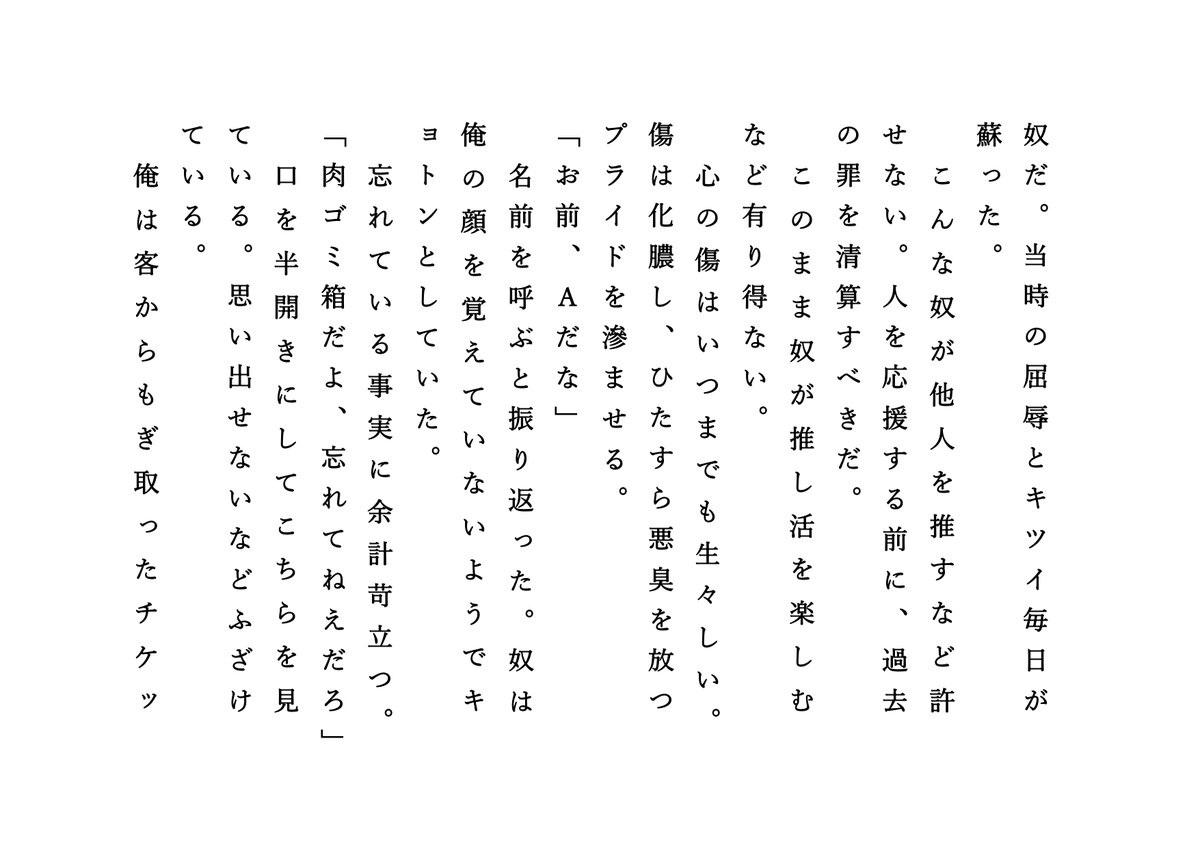 奴だ。当時の屈辱とキツイ毎日が
蘇った。
　こんな奴が他人を推すなど許
せない。人を応援する前に、過去
の罪を清算すべきだ。
　このまま奴が推し活を楽しむ
など有り得ない。
　心の傷はいつまでも生々しい。
傷は化膿し、ひたすら悪臭を放つ
プライドを滲ませる。
「お前、Aだな」
　名前を呼ぶと振り返った。奴は
俺の顔を覚えていないようでキ
ョトンとしていた。
　忘れている事実に余計苛立つ。
「肉ゴミ箱だよ、忘れてねえだろ」
　口を半開きにしてこちらを見
ている。思い出せないなどふざけ
ている。
　俺は客からもぎ取ったチケッ